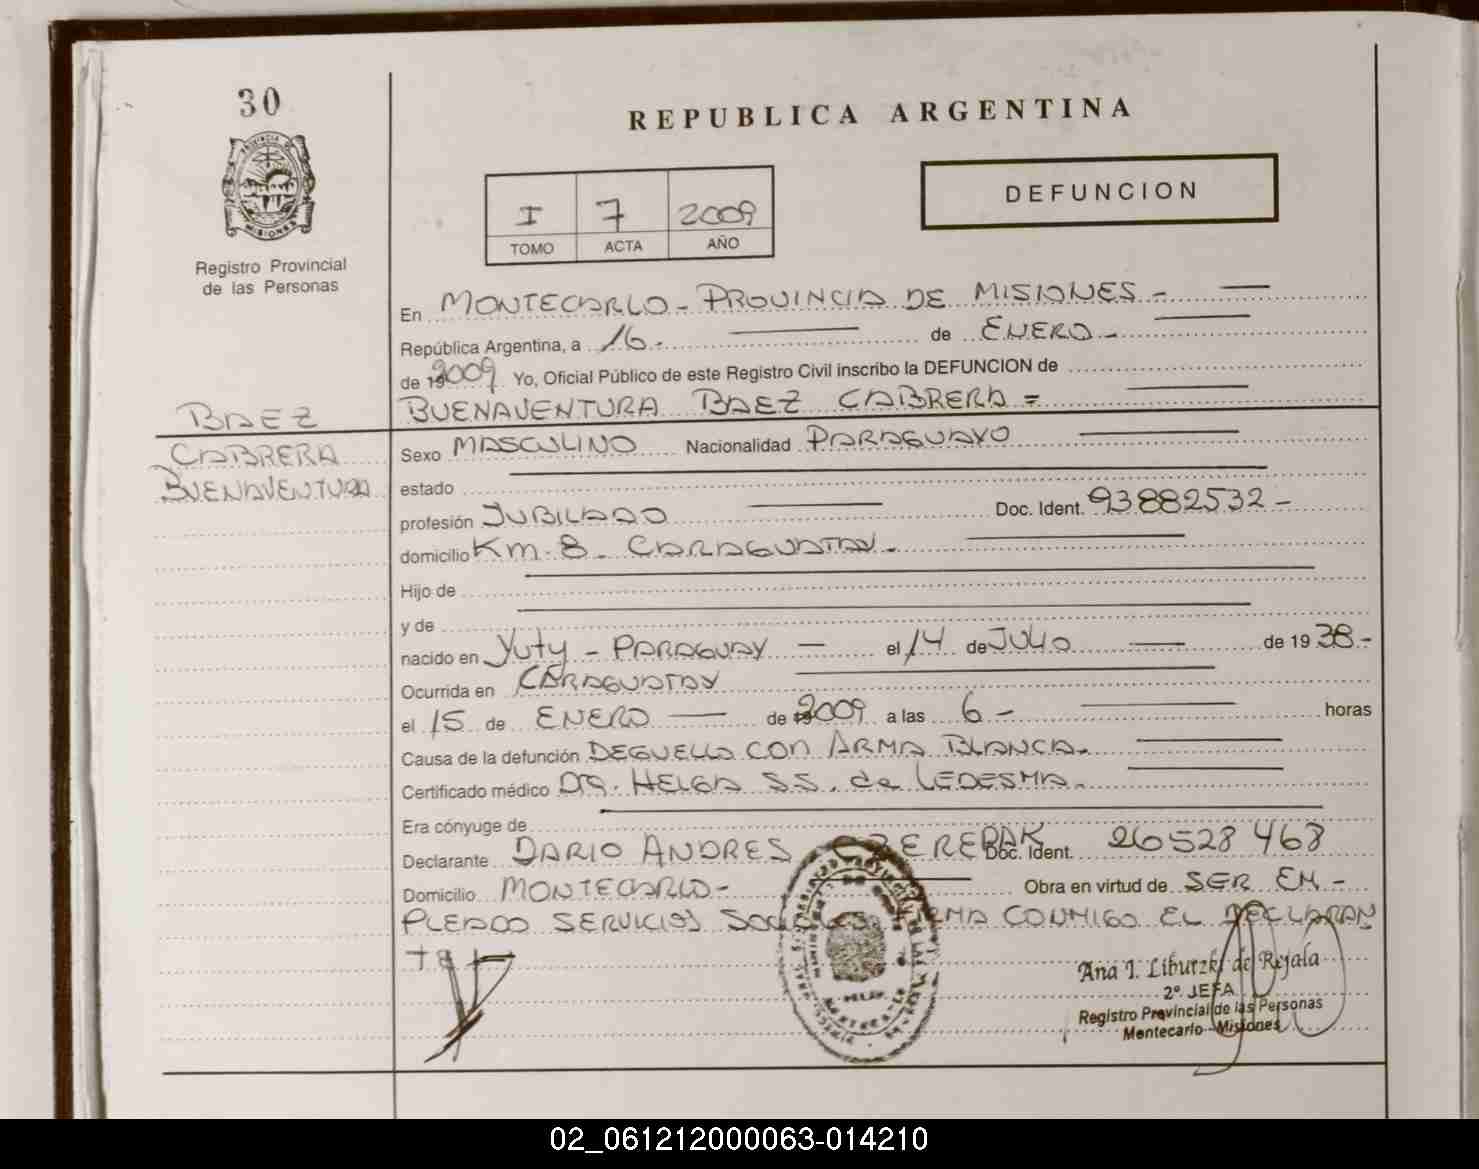 30
REPUBLICA ARGENTINA
PROVINCIA DE
MISIONES
Registro Provincial
de las Personas
I 7 2009
TOMO ACTA AÑO
DEFUNCION
En MONTECARLO - PROVINCIA DE MISIONES -
República Argentina, a 16. de ENERO -
de 2009 Yo, Oficial Público de este Registro Civil inscribo la DEFUNCION de
BAEZ BUENAVENTURA BAEZ CABRERA =
CABRERA Sexo MASCULINO Nacionalidad PARAGUAYO
BUENAVENTURA estado
profesión JUBILADO Doc. Ident. 93882532 -
domicilio Km. 8 - CARAGUATAY -
Hijo de
y de
nacido en Yuty - PARAGUAY — el 14 de JULIO de 19 38 -
Ocurrida en CARAGUATAY
el 15 de ENERO — de 2009 a las 6 - horas
Causa de la defunción DEGUELLO CON ARMA BLANCA -
Certificado médico DRA. HELGA S.S. de LEDESMA -
Era cónyuge de
Declarante DARIO ANDRES CZEREPAK Doc. Ident. 26528468
Domicilio MONTECARLO - Obra en virtud de SER EM -
PLEADO SERVICIOS SOCIALES FIRMA CONMIGO EL DECLARAN
TE
Ana I. Liburzki de Rejala
2º JEFA
Registro Provincial de las Personas
Montecarlo - Misiones
02_061212000063-014210